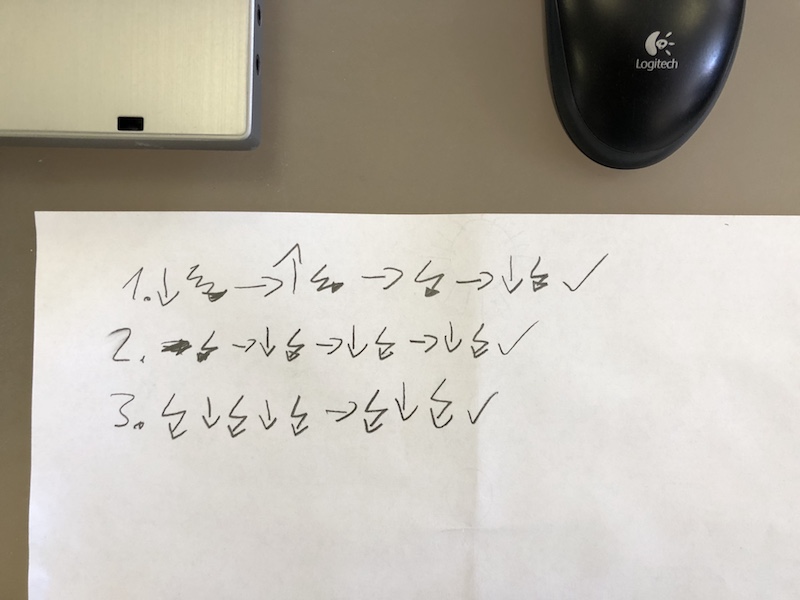 Logitech
1. ↓ ↯ → ↑ ↯ → ↯ → ↓ ↯ ✓
2. ↯ → ↓ ↯ → ↓ ↯ → ↓ ↯ ✓
3. ↯ ↓ ↯ ↓ ↯ → ↯ ↓ ↯ ✓